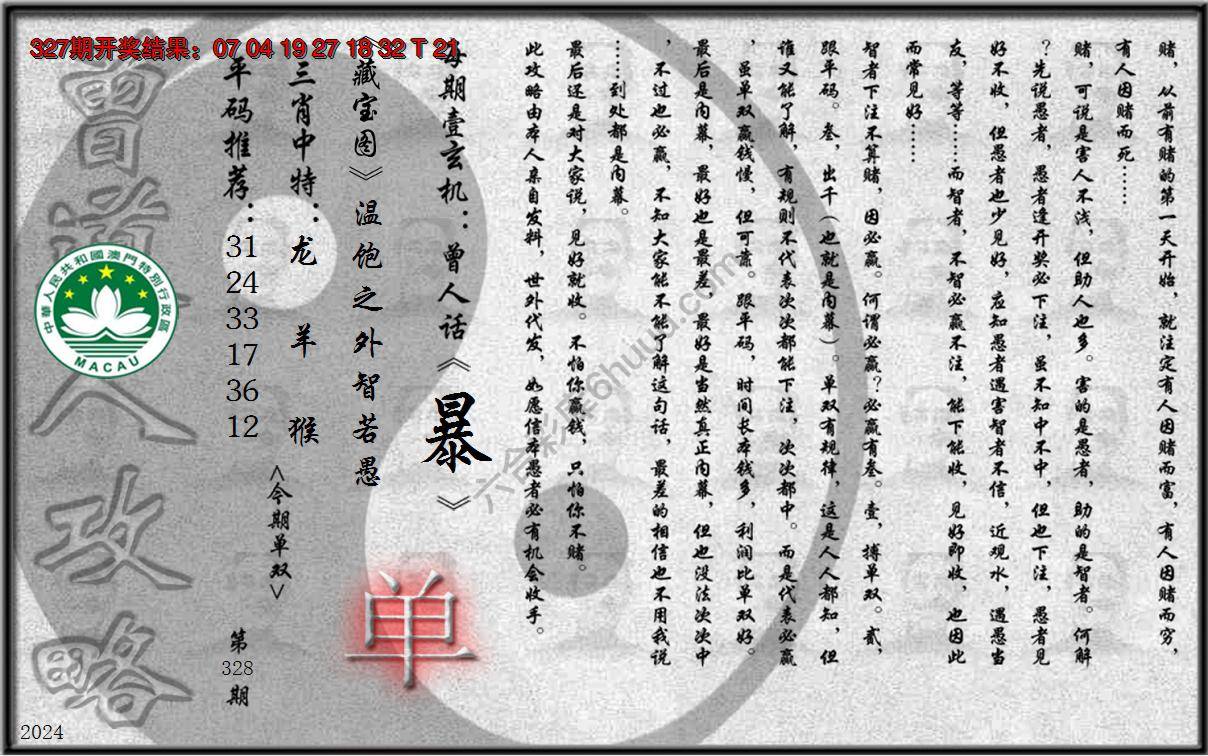 327期开奖结果：07 04 19 27 18 32 T 21
赌，从前有赌的第一天开始，就注定有人因赌而富，有人因赌而穷，
有人因赌而死……
赌，可说是害人不浅，但助人也多。害的是愚者，助的是智者。何解
？先说愚者，愚者逢开奖必下注，虽不知中不中，但也下注，愚者见
好不收，但愚者也少见好，应知愚者遇害智者不信，近观水，遇愚当
友，等等……而智者，不智必赢不注，能下能收，见好即收，也因此
而常见好……
智者下注不算赌，因必赢。何谓必赢？必赢有叁。壹，搏单双。贰，
跟平码。叁，出千（也就是内幕）。单双有规律，这是人人都知，但
谁又能了解，有规则不代表次次都能下注，次次都中。而是代表必赢
，虽单双赢钱慢，但可靠。跟平码，时间长本钱多，利润比单双好。
最后是内幕，最好也是最差，最好是当然真正内幕，但也没法次次中
，不过也必赢，不知大家能不能了解这句话，最差的相信也不用我说
……到处都是内幕。
最后还是对大家说，见好就收。不怕你赢钱，只怕你不赌。
此攻略由本人亲自发料，世外代发，如愿信本愚者必有机会收手。
每期壹玄机：曾人话《暴》
《藏宝图》温饱之外智若愚
单
三肖中特：龙 羊 猴
<今期单双>
平码推荐：31 24 33 17 36 12
第328期
曾道人攻略
中華人民共和國澳門特別行政區
MACAU
六合彩库6huuu.com
2024